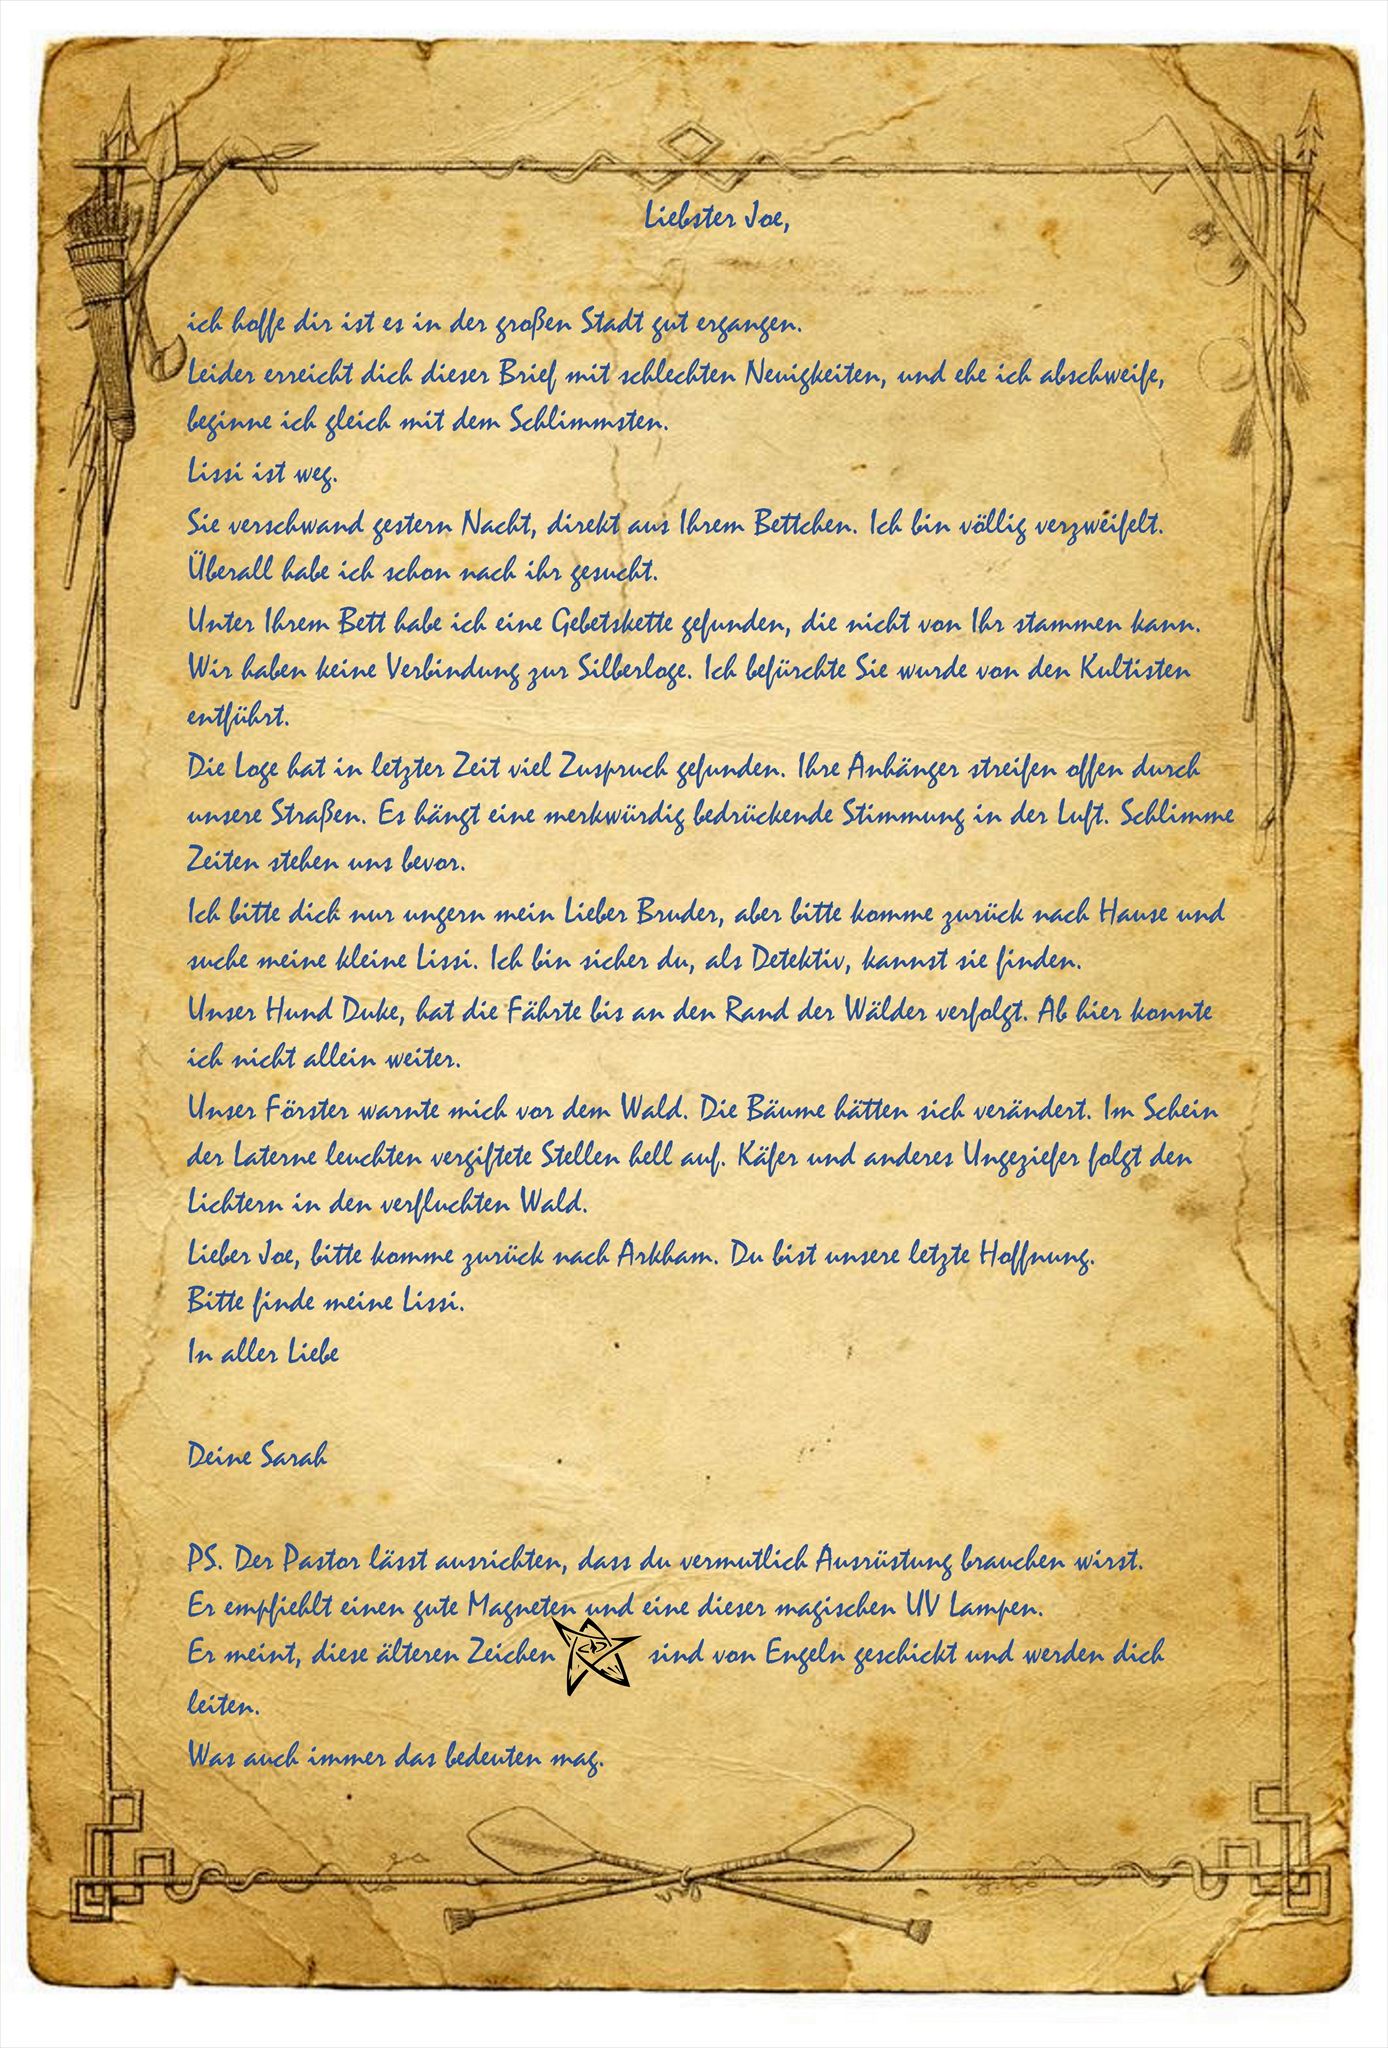 Liebster Joe,
ich hoffe dir ist es in der großen Stadt gut ergangen.
Leider erreicht dich dieser Brief mit schlechten Neuigkeiten, und ehe ich abschweife,
beginne ich gleich mit dem Schlimmsten.
Lissi ist weg.
Sie verschwand gestern Nacht, direkt aus Ihrem Bettchen. Ich bin völlig verzweifelt.
Überall habe ich schon nach ihr gesucht.
Unter Ihrem Bett habe ich eine Gebetskette gefunden, die nicht von Ihr stammen kann.
Wir haben keine Verbindung zur Silberloge. Ich befürchte Sie wurde von den Kultisten
entführt.
Die Loge hat in letzter Zeit viel Zuspruch gefunden. Ihre Anhänger streifen offen durch
unsere Straßen. Es hängt eine merkwürdig bedrückende Stimmung in der Luft. Schlimme
Zeiten stehen uns bevor.
Ich bitte dich nur ungern mein Lieber Bruder, aber bitte komme zurück nach Hause und
suche meine kleine Lissi. Ich bin sicher du, als Detektiv, kannst sie finden.
Unser Hund Duke, hat die Fährte bis an den Rand der Wälder verfolgt. Ab hier konnte
ich nicht allein weiter.
Unser Förster warnte mich vor dem Wald. Die Bäume hätten sich verändert. Im Schein
der Laterne leuchten vergiftete Stellen hell auf. Käfer und anderes Ungeziefer folgt den
Lichtern in den verfluchten Wald.
Lieber Joe, bitte komme zurück nach Arkham. Du bist unsere letzte Hoffnung.
Bitte finde meine Lissi.
In aller Liebe
Deine Sarah
PS. Der Pastor lässt ausrichten, dass du vermutlich Ausrüstung brauchen wirst.
Er empfiehlt einen gute Magneten und eine dieser magischen UV Lampen.
Er meint, diese älteren Zeichen sind von Engeln geschickt und werden dich
leiten.
Was auch immer das bedeuten mag.